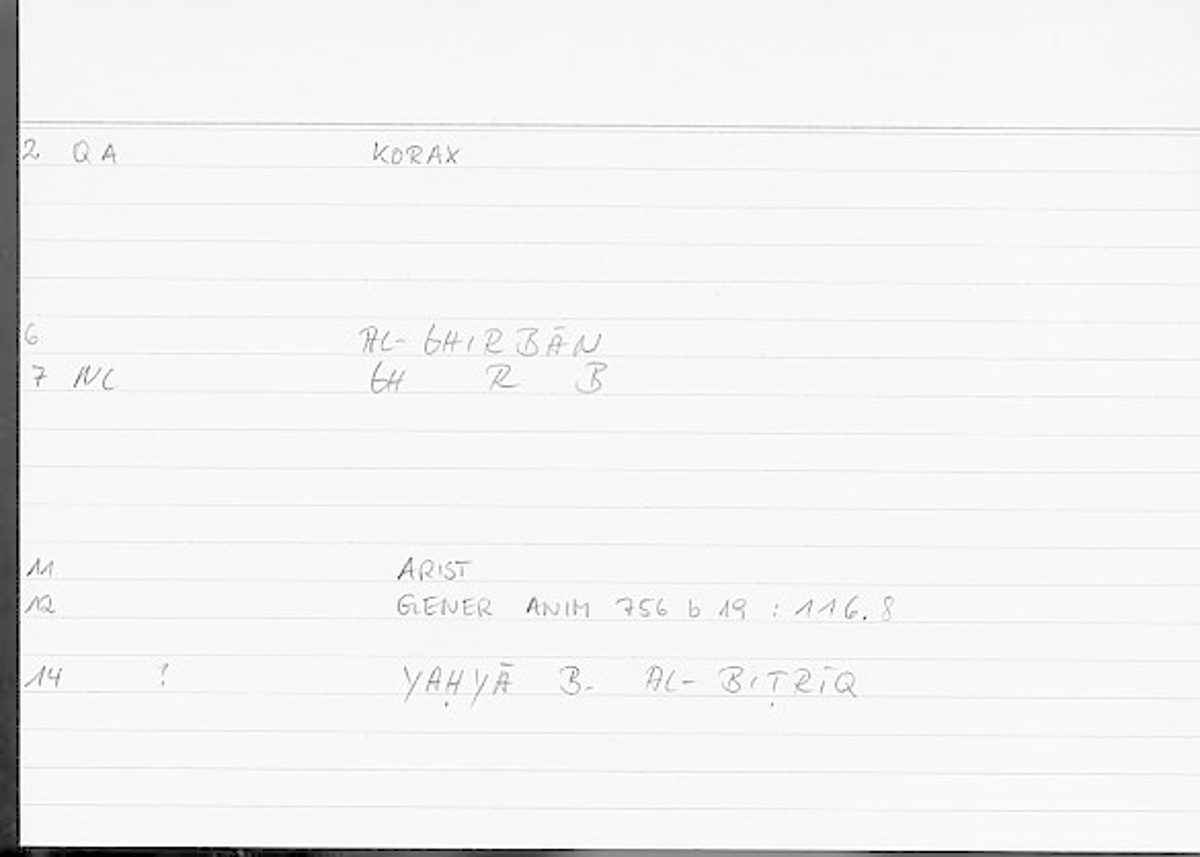 2 QA KORAX
6 AL-GHIRBĀN
7 NC GH R B
11 ARIST
12 GENER ANIM 756 b 19 : 116.8
14 ! YAḤYĀ B. AL-BIṬRĪQ